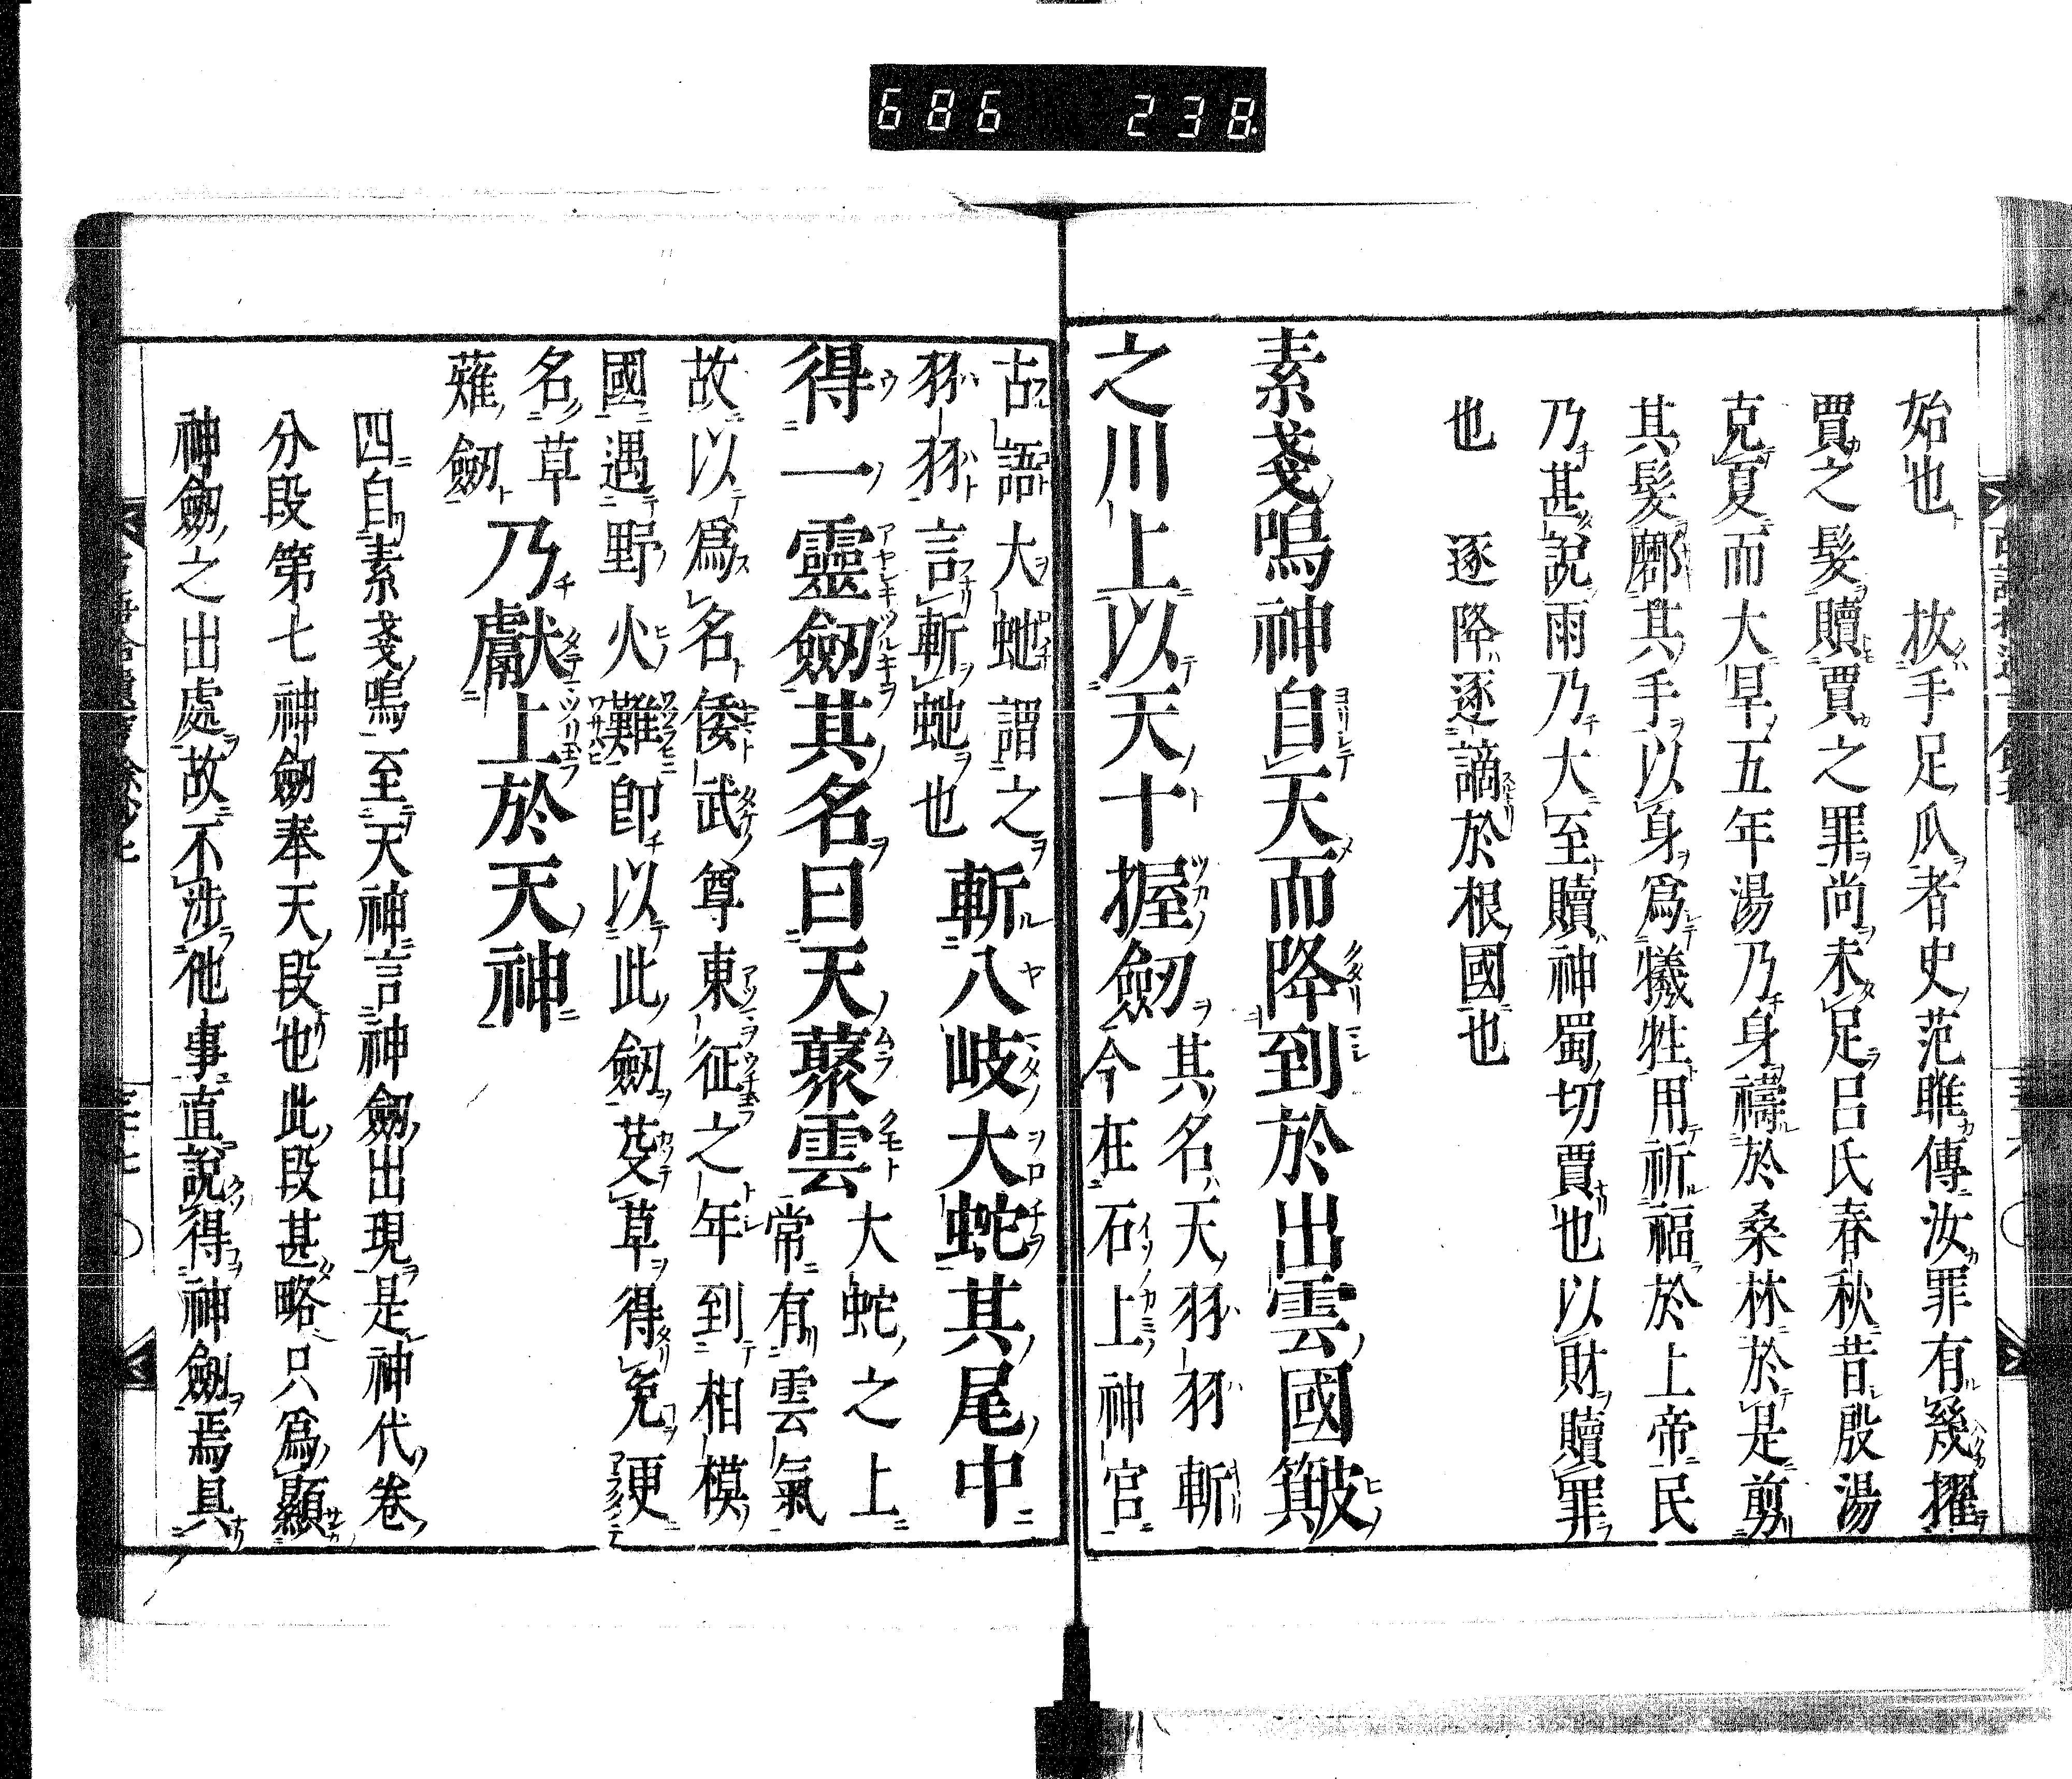 686 238
始也 拔手足爪者史范雎傳汝罪有幾擢
賈之髮贖賈之罪尚未足呂氏春秋昔殷湯
克夏而大旱五年湯乃身禱於桑林於是剪
其髮𨟖其手以身爲犧牲用祈福於上帝民
乃甚説雨乃大至贖神蜀切賈也以財贖罪
也 逐降逐謫於根國也
素戔嗚神自天而降到於出雲國簸
之川上以天十握劔
其名天羽羽斬
今在石上神宮
古語大虵謂之
羽羽言斬虵也
斬八岐大蛇其尾中
得一靈劔其名曰天藂雲
大蛇之上
常有雲氣
故以爲名倭武尊東征之年到相模
國遇野火難卽以此劔芟草得免更
名草
薙劔
乃獻上於天神
四自素戔嗚至天神言神劔出現是神代卷
分段第七神劔奉天段也此段甚略只爲顯
神劔之出處故不涉他事直説得神劔焉具